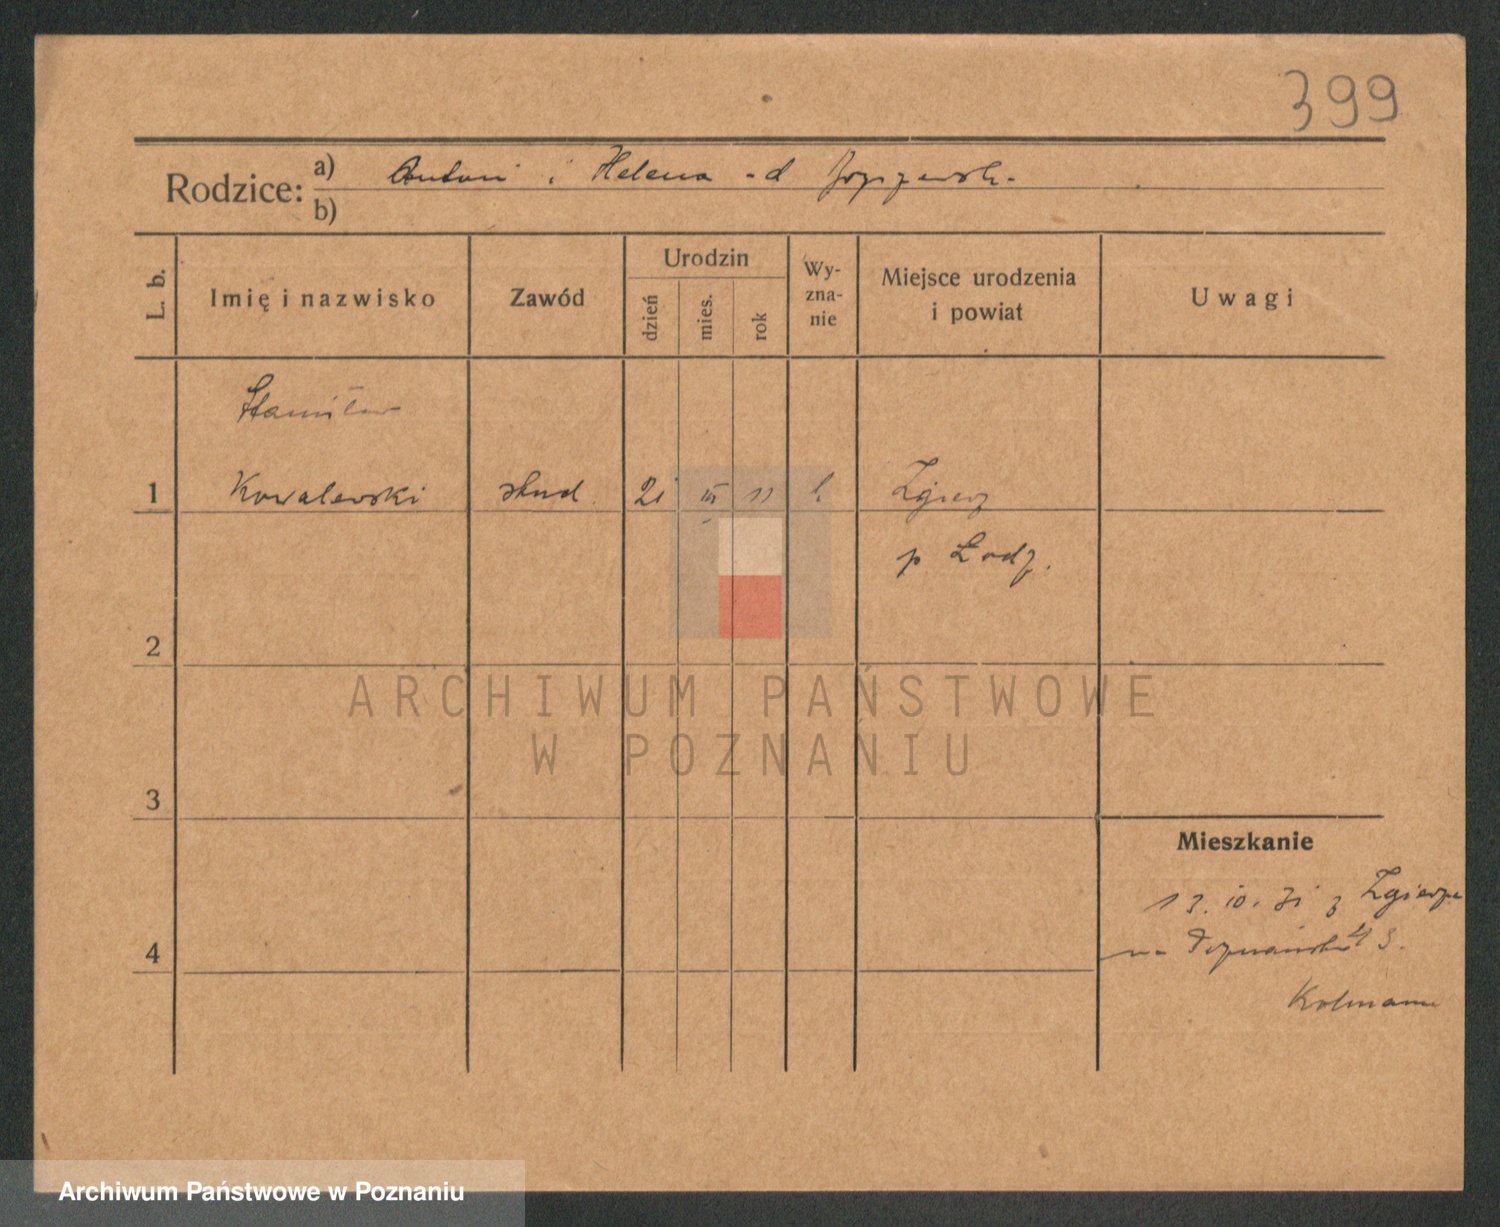 399
Rodzice: a) Antoni i Helena
b)
L. b.
Imię i nazwisko
Zawód
Urodzin
dzień
mies.
rok
Wy-
zna-
nie
Miejsce urodzenia
i powiat
Uwagi
Stanisław
1 Kowalewski stud. 21 III 11 k. Zgierz
p Łodz.
2
ARCHIWUM PAŃSTWOWE
W POZNANIU
3
Mieszkanie
13. 10. 31 z Zgierza
4
na Poznańska 43.
Kolmann
Archiwum Państwowe w Poznaniu